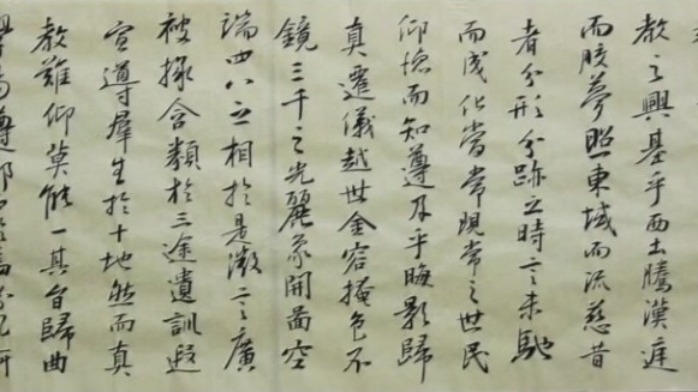 教之興基乎西土騰漢庭
而皎夢照東域而流慈昔
者分形分跡之時言未馳
而成化當常現常之世民
仰德而知遵及乎晦影歸
真遷儀越世金容掩色不
鏡三千之光麗象開圖空
端四八之相於是微言廣
被拯含類於三途遺訓遐
宣導羣生於十地然而真
教難仰莫能一其旨歸曲